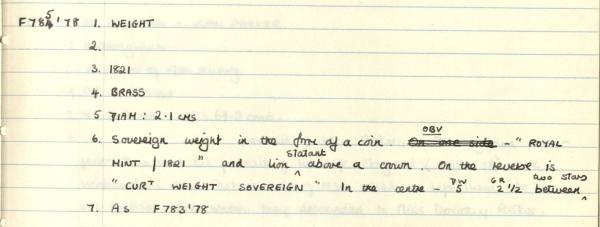 F785'78 1. WEIGHT
2.
3. 1821
4. BRASS
5 DIAM: 2.1 cms
6. Sovereign weight in the form of a coin. On one side OBV - "ROYAL
MINT / 1821" and lion statant above a crown. On the reverse is
"CURT WEIGHT SOVEREIGN" In the centre - DW 5 GR 2 1/2 between two stars
7. As F783'78